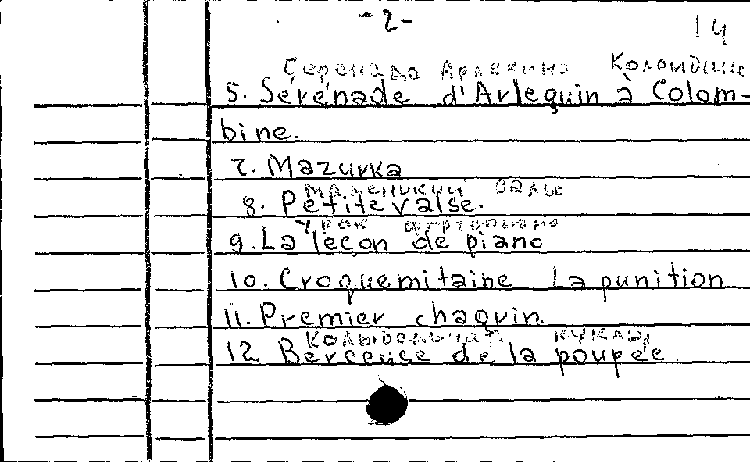 -2-
14
Серенада Арлекина Коломбине
5. Sérénade d'Arlequin à Colom-
bine.
7. Mazurka
Маленький вальс
8. Petite valse.
Урок фортепиано
9. La leçon de piano
10. Croquemitaine La punition
11. Premier chagrin.
Колыбельная куклы
12 Berceuse de la poupée